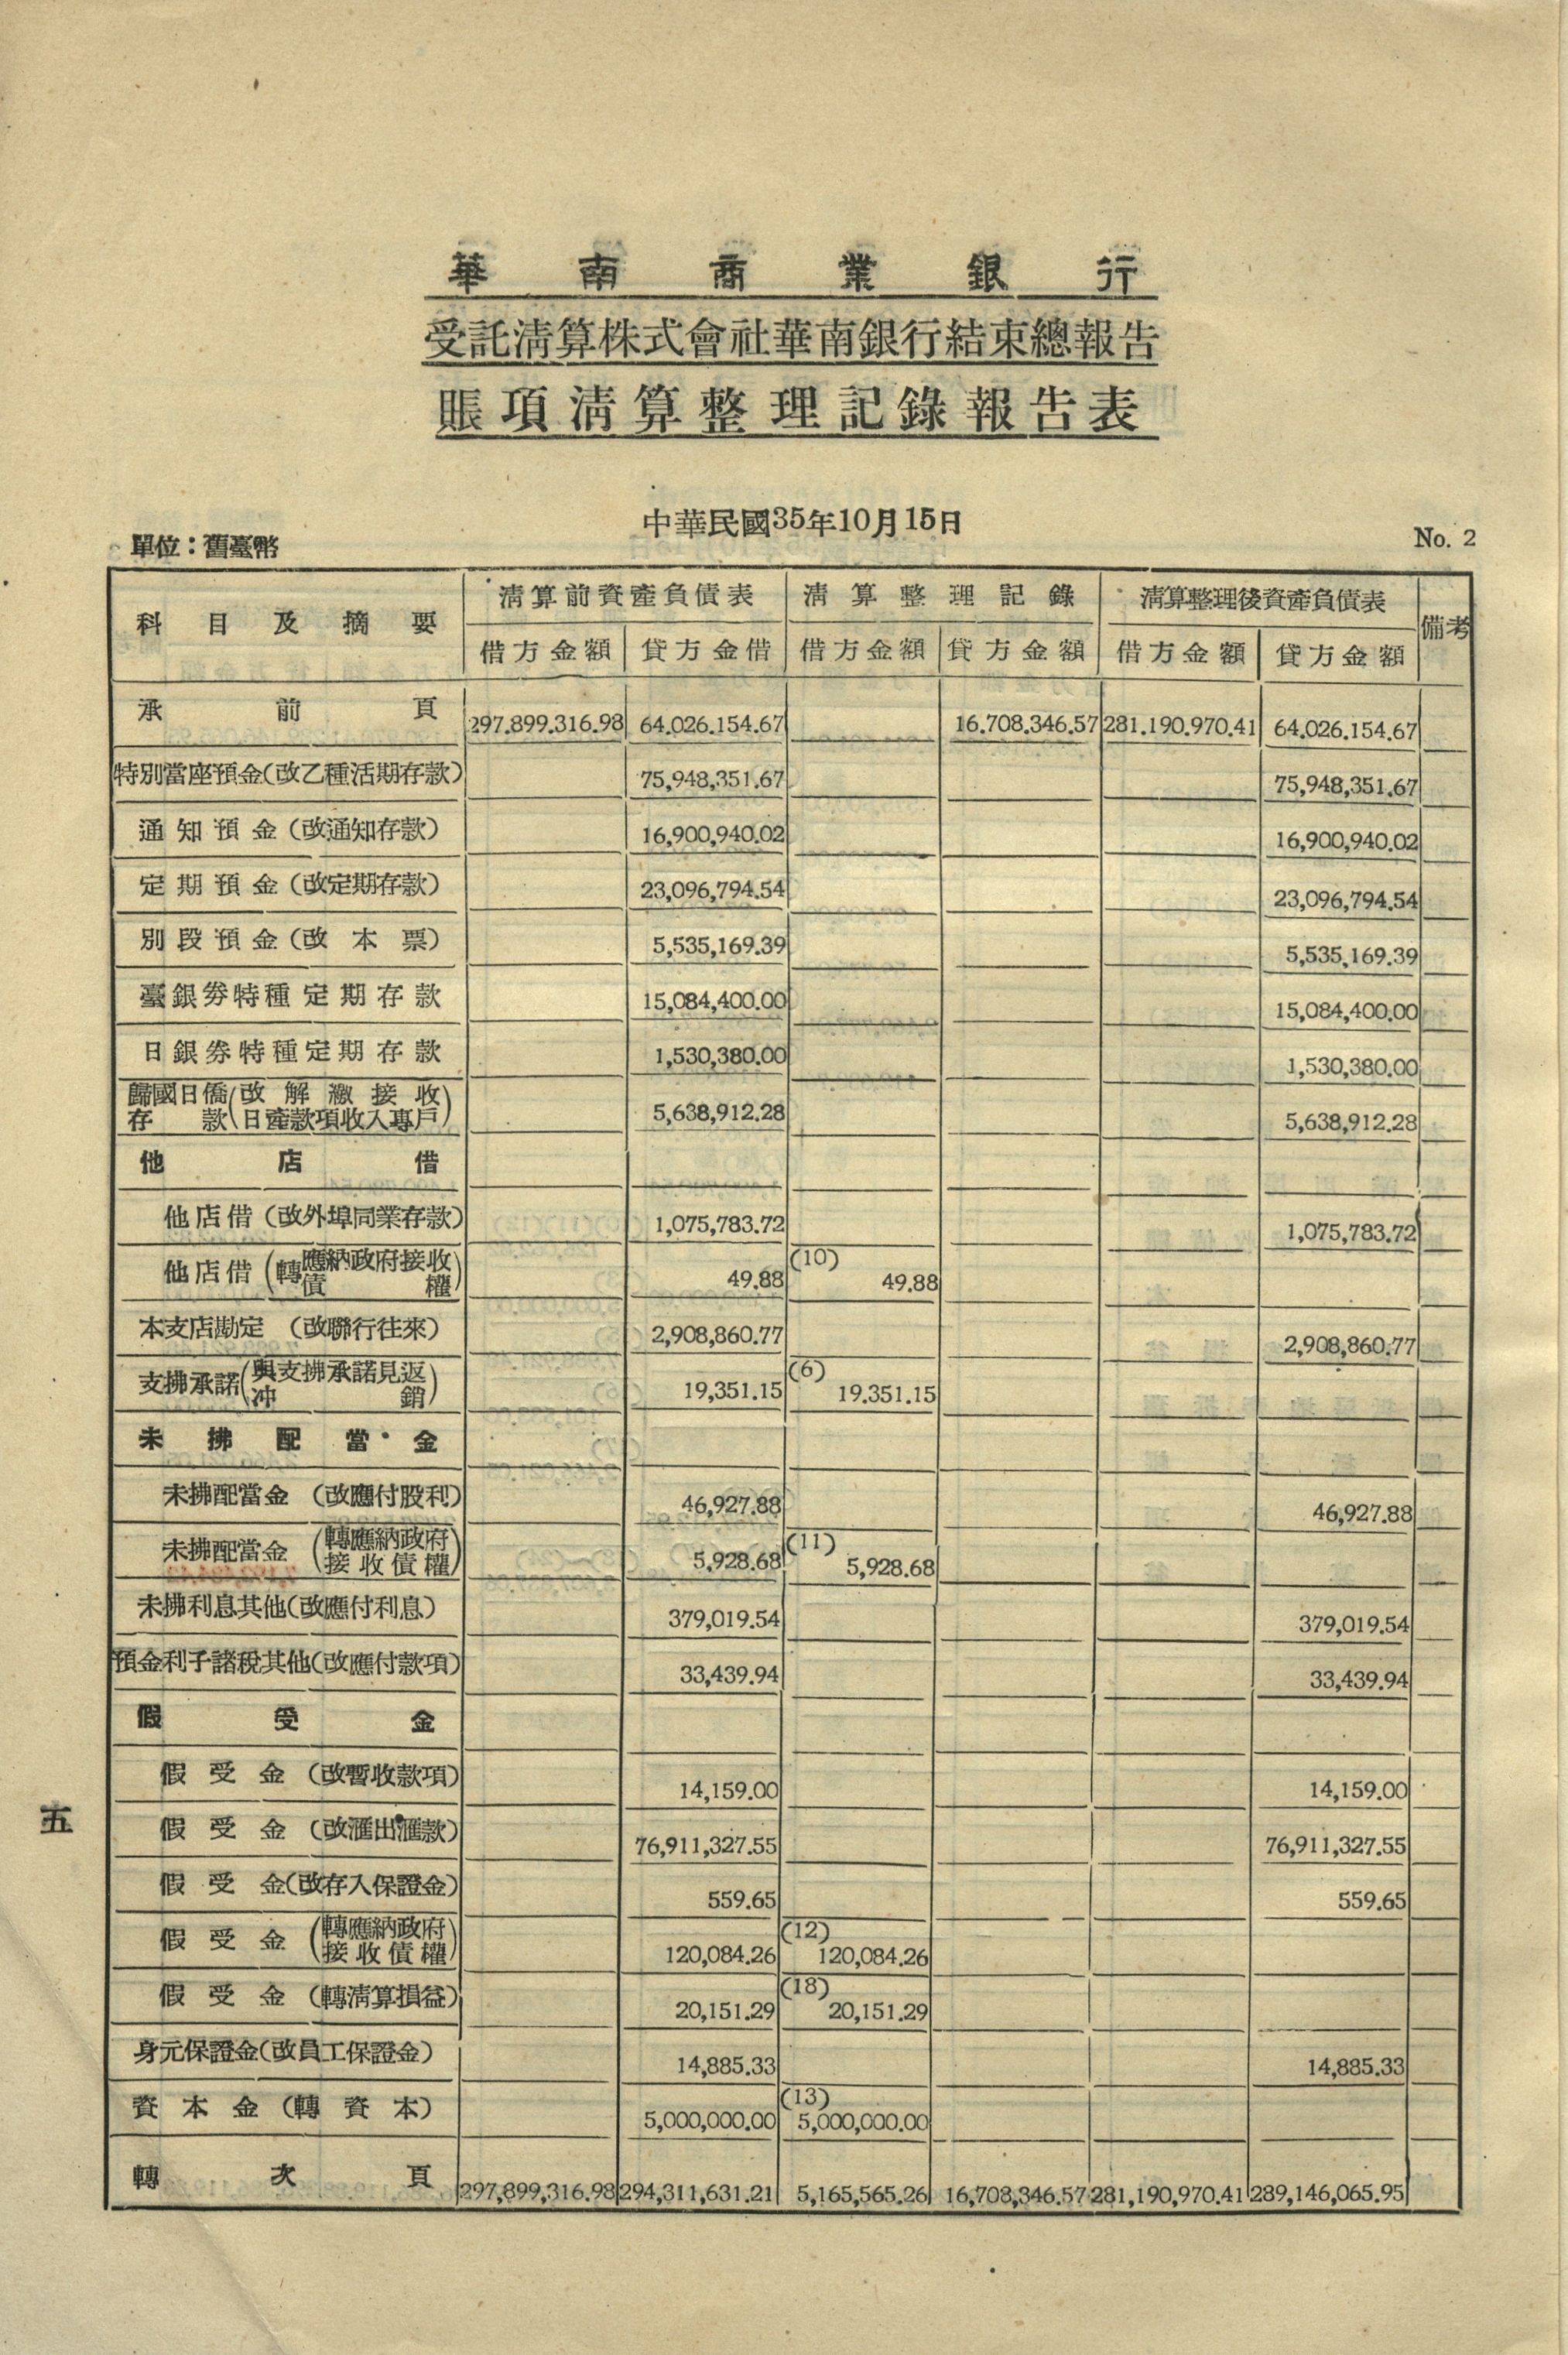 華南商業銀行
受託淸算株式會社華南銀行結束總報吿
賬項淸算整理記錄報吿表
中華民國35年10月15日
單位：舊臺幣 No. 2
科目及摘要 淸算前資產負債表 淸算整理記錄 淸算整理後資產負債表 備考
借方金額 貸方金借 借方金額 貸方金額 借方金額 貸方金額
承前頁 297.899.316.98 64.026.154.67 16.708.346.57 281.190.970.41 64.026.154.67
特別當座預金(改乙種活期存款) 75,948,351.67 75,948,351.67
通知預金(改通知存款) 16,900,940.02 16,900,940.02
定期預金(改定期存款) 23,096,794.54 23,096,794.54
別段預金(改本票) 5,535,169.39 5,535,169.39
臺銀券特種定期存款 15,084,400.00 15,084,400.00
日銀券特種定期存款 1,530,380.00 1,530,380.00
歸國日僑(改解繳接收
存款 日產款項收入專戶) 5,638,912.28 5,638,912.28
他店借
他店借(改外埠同業存款) 1,075,783.72 1,075,783.72
他店借(轉應納政府接收
債權) 49.88 (10) 49.88
本支店勘定(改聯行往來) 2,908,860.77 2,908,860.77
支拂承諾(與支拂承諾見返
冲銷) 19,351.15 (6) 19.351.15
未拂配當金
未拂配當金(改應付股利) 46,927.88 46,927.88
未拂配當金(轉應納政府
接收債權) 5,928.68 (11) 5,928.68
未拂利息其他(改應付利息) 379,019.54 379,019.54
預金利子諸稅其他(改應付款項) 33,439.94 33,439.94
假受金
假受金(改暫收款項) 14,159.00 14,159.00
假受金(改滙出滙款) 76,911,327.55 76,911,327.55
假受金(改存入保證金) 559.65 559.65
假受金(轉應納政府
接收債權) 120,084.26 (12) 120,084.26
假受金(轉淸算損益) 20,151.29 (18) 20,151.29
身元保證金(改員工保證金) 14,885.33 14,885.33
資本金(轉資本) 5,000,000.00 (13) 5,000,000.00
轉次頁 297,899,316.98 294,311,631.21 5,165,565.26 16,708,346.57 281,190,970.41 289,146,065.95
五